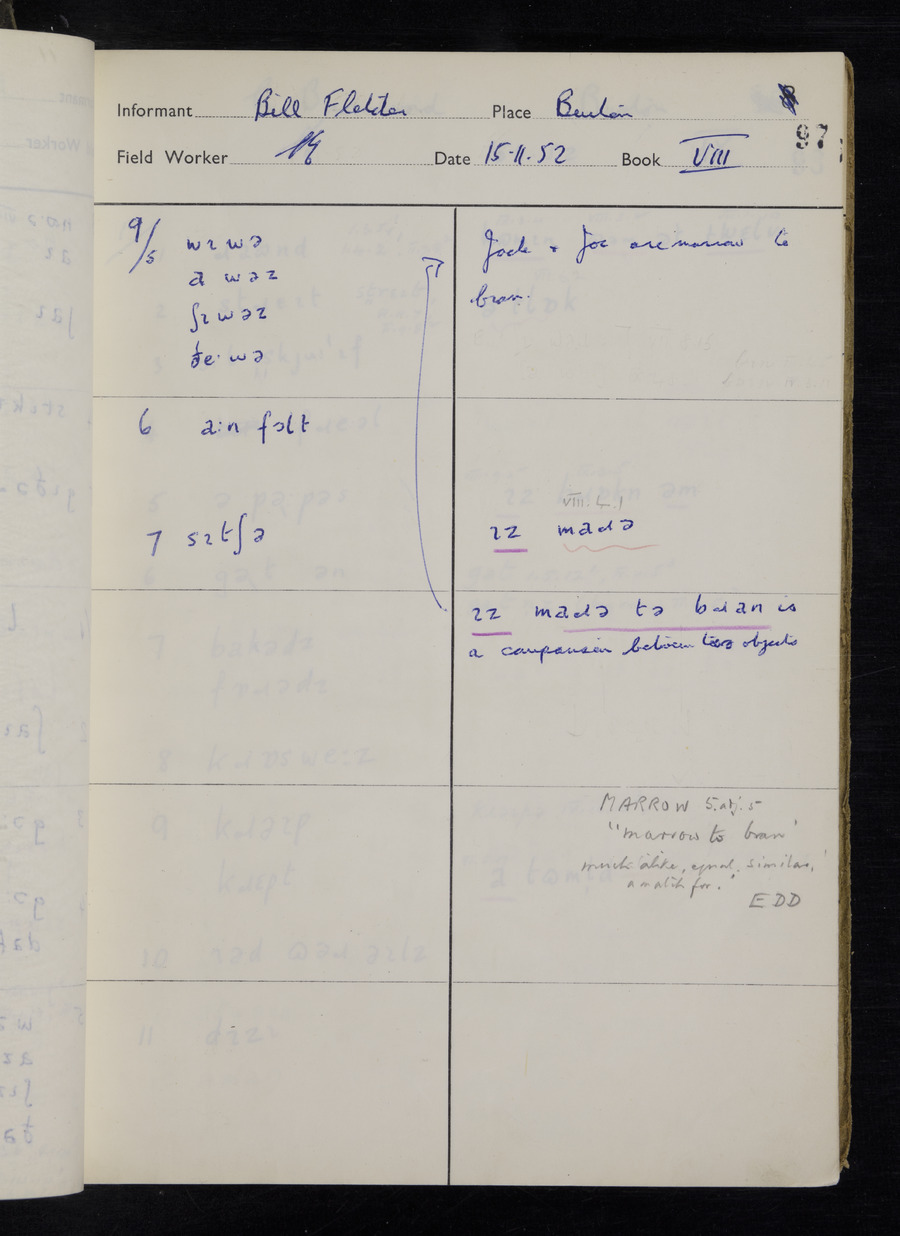 Informant Bill Place
97
Field Worker Date 15·11·52 Book VIII
9/5 wɪ wə
wəz
ʃɪ wəz
ðe· wə
Jack + Joe are marrow to
bran.
6 fɔlt
7 sɪtʃə
VIII. 4. 1
ɪz
ɪz tə is
a comparison between two objects
MARROW s. adj. 5
"marrow to bran'
much alike, equal, similar,
a match for.'
EDD